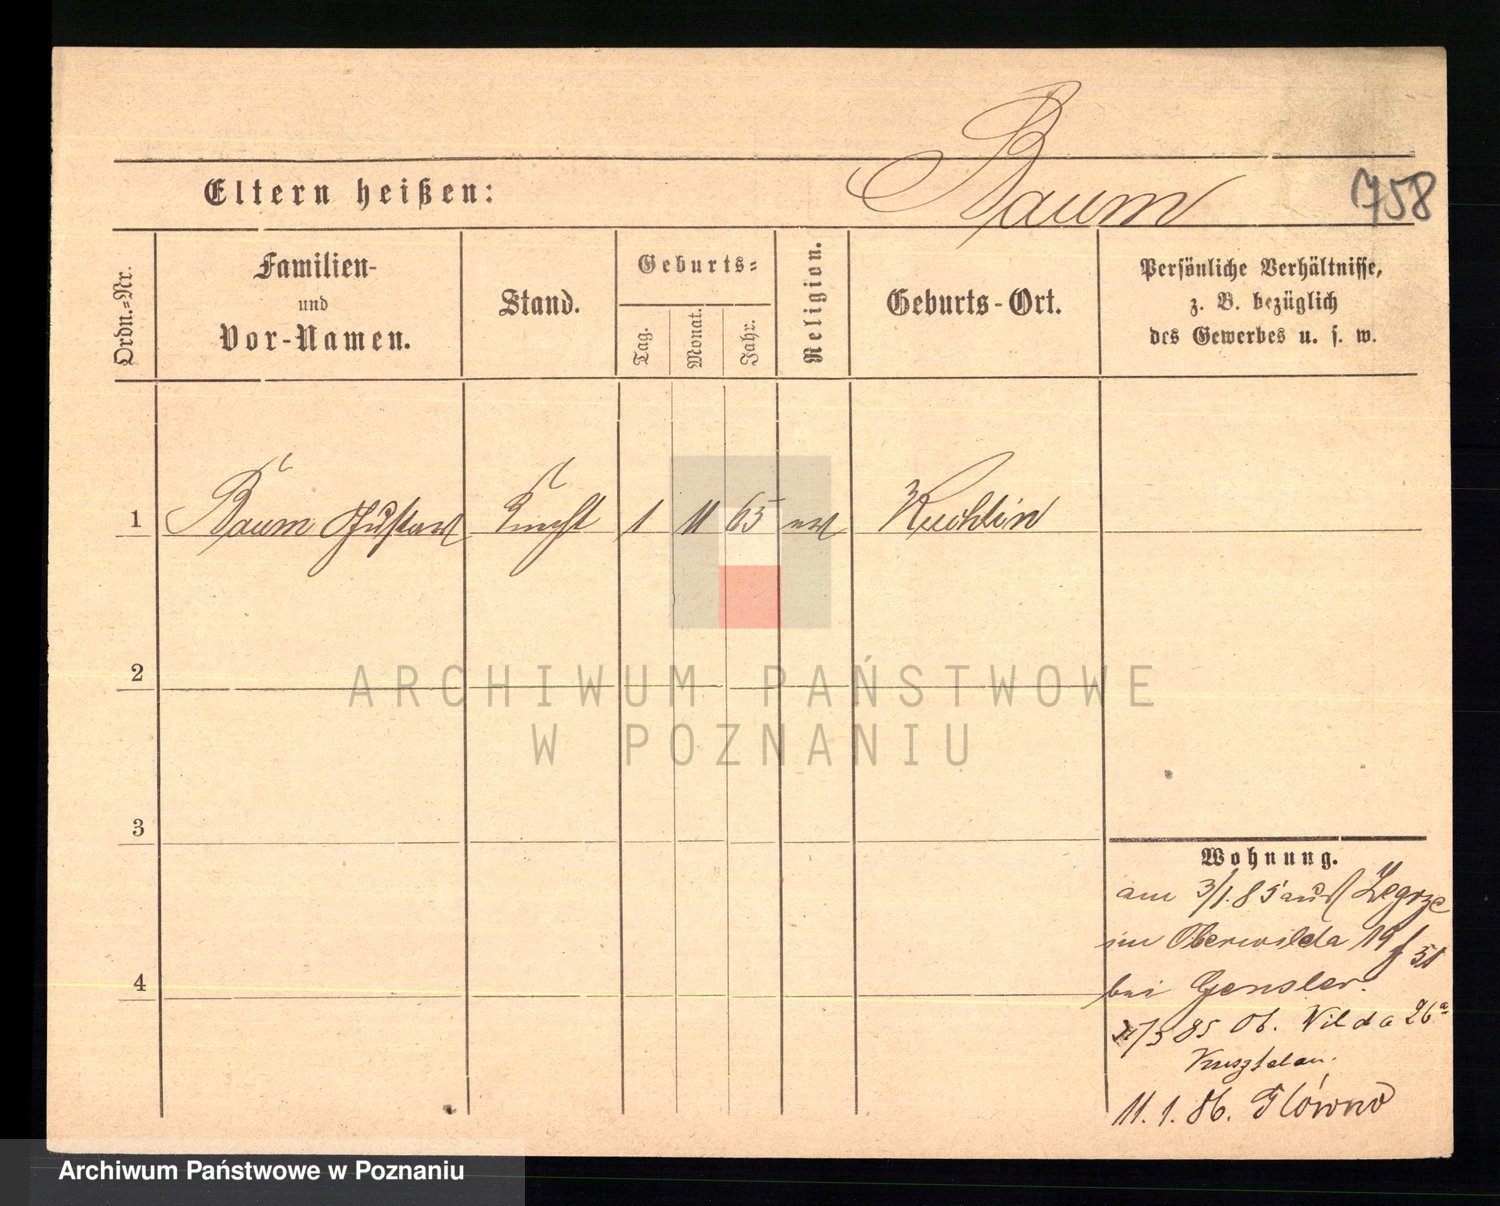 Baum
758
Eltern heißen:
Ordn.-Nr.
Familien-
und
Vor-Namen.
Stand.
Geburts-
Tag.
Monat.
Jahr.
Religion.
Geburts-Ort.
Persönliche Verhältnisse,
z. B. bezüglich
des Gewerbes u. s. w.
1 Baum Gustav Knecht 1 11 65 ev Kuchlin
2
ARCHIWUM PAŃSTWOWE
W POZNANIU
3
4
Wohnung.
am 3/1.85 aus Zegrze
in Oberwilda 19
bei Gensler.
/3 85 Ob. Wilda 26a
11.1.86. Główno
Archiwum Państwowe w Poznaniu